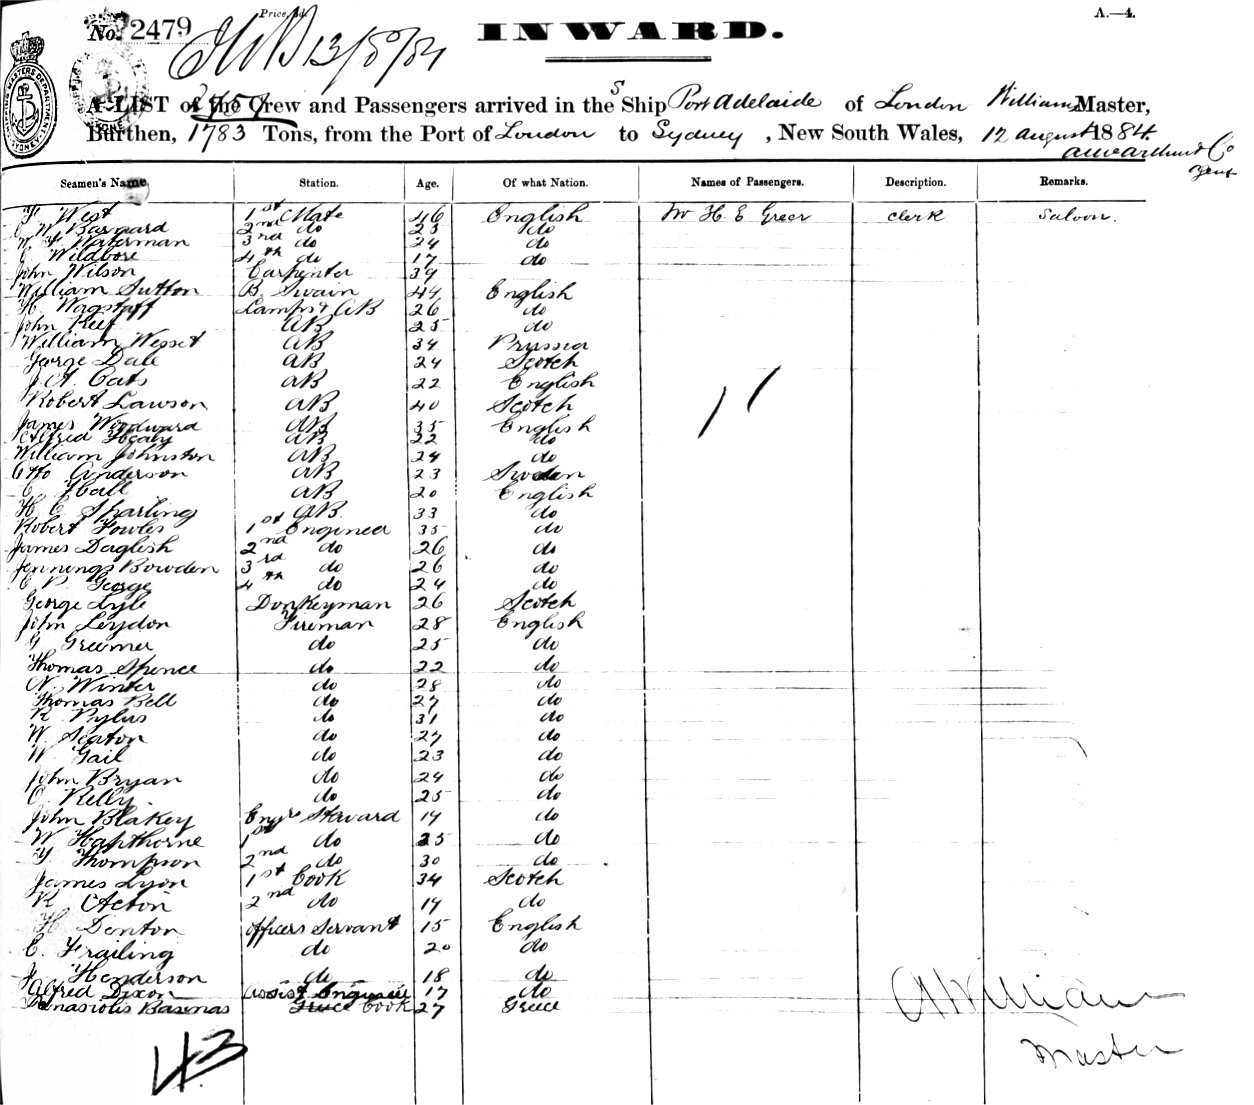 Price, 3d.
A.—4.
No. 2479
INWARD.
13/8/84
A LIST of the Crew and Passengers arrived in the S Ship Port Adelaide of London Williams Master,
Burthen, 1783 Tons, from the Port of London to Sydney, New South Wales, 12 August 1884
Agent
Seamen's Name. Station. Age. Of what Nation. Names of Passengers. Description. Remarks.
F West 1st Mate 46 English Mr H. E Greer Clerk Saloon.
C W Barnard 2nd do 23 do
W F Waterman 3rd do 24 do
C Wildbore 4th do 17 do
John Wilson Carpenter 39
William Sutton B. Swain 44 English
H Wagstaff Lamps & AB 26 do
John Keef AB 25 do
William Wesset AB 34 Prussia
George Dale AB 24 Scotch
J. A. Cats AB 22 English
Robert Lawson AB 40 Scotch
James Woodward AB 35 English
Alfred Healy AB 22 do
William Johnston AB 24 do
Otto Anderson AB 23 Sweden
C Hall AB 20 English
H C Sparling AB. 33 do
Robert Fowles 1st Engineer 35 do
James Daglish 2nd do 26 do
Jennings Bowden 3rd do 26 do
C P George 4th do 24 do
George Lyle Donkeyman 26 Scotch
John Leydon Fireman 28 English
G Greemer do 25 do
Thomas Spence do 22 do
N Winter do 28 do
Thomas Bell do 27 do
R Pylus do 31 do
W. Seaton do 27 do
W Gail do 23 do
John Bryan do 24 do
C Kelly do 25 do
John Blakey Engrs Steward 19 do
W Hapthorne 1st do 25 do
Y Thompson 2nd do 30 do
James Lyon 1st Cook 34 Scotch
R Acton 2nd do 19 do
H Denton Officers Servant 15 English
C. Frailing do 20 do
J Henderson do 18 do
Alfred Dixon Assist Engineer 17 do
Panasiotis Basenas Cook 27 Greece
A Williams
Master
43